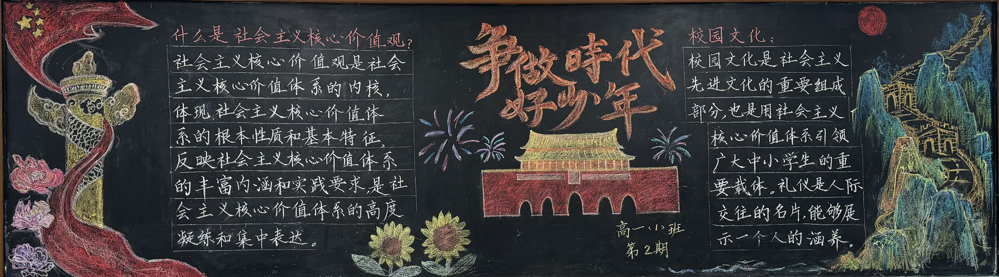 什么是社会主义核心价值观?
社会主义核心价值观是社会
主义核心价值体系的内核,
体现社会主义核心价值体
系的根本性质和基本特征,
反映社会主义核心价值体系
的丰富内涵和实践要求,是社
会主义核心价值体系的高度
凝练和集中表达。
争做時代
好少年
高一(八)班
第2期
校园文化:
校园文化是社会主义
先进文化的重要组成
部分,也是用社会主义
核心价值体系引领
广大中小学生的重
要载体,礼仪是人际
交往的名片,能够展
示一个人的涵养。